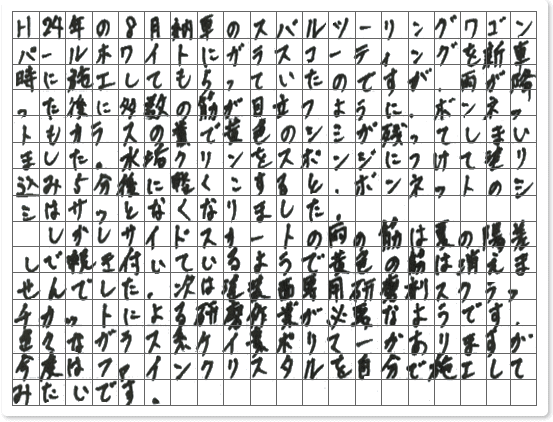 H24年の8月納車のスバルツーリングワゴン
パールホワイトにガラスコーティングを新車
時に施工してもらっていたのですが、雨が降
った後に多数の筋が目立つように、ボンネッ
トもカラスの糞で黄色のシミが残ってしまい
ました。水垢クリンをスポンジにつけて塗り
込み5分後に軽くこすると、ボンネットのシ
ミはサッとなくなりました。
しかしサイドスカートの雨の筋は夏の陽差
しで焼き付いているようで黄色の筋は消えま
せんでした。次は塗装面専用研磨剤スクラッ
チカットによる研磨作業が必要なようです。
色々なガラス系ケイ素ポリマーがありますが
今度はファインクリスタルを自分で施工して
みたいです。